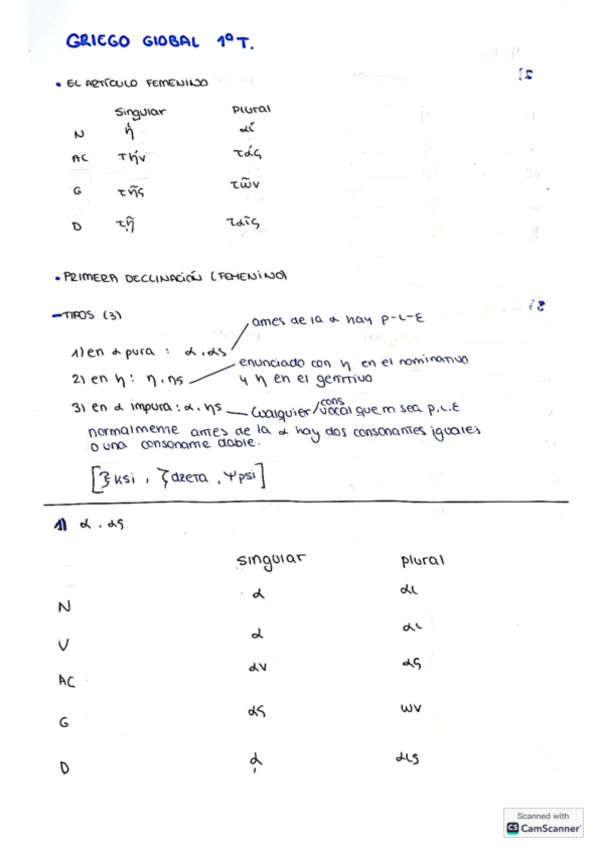 GRIEGO GLOBAL 1º T.
• EL ARTÍCULO FEMENINO
Singular Plural
N ἡ αἱ
AC τήν τάς
G τῆς τῶν
D τῇ ταῖς
• PRIMERA DECLINACIÓN (FEMENINO)
- TIPOS (3)
antes de la α hay ρ-ι-ε
1) en α pura : α, ας
enunciado con η en el nominativo
2) en η : η, ης
y η en el genitivo
3) en α impura : α, ης
cualquier / vocal que no sea ρ, ι, ε
cons
normalmente antes de la α hay dos consonantes iguales
o una consonante doble.
[ξ ksi, ζ dzeta, ψ psi]
1) α, ας
singular plural
N α αι
V α αι
AC αν ας
G ας ων
D ᾳ αις
Scanned with
CS CamScanner